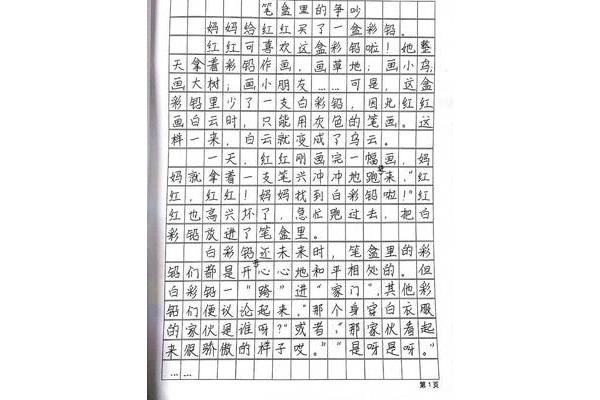 笔盒里的争吵
妈妈给红红买了一盒彩铅。
红红可喜欢这盒彩铅啦！她整
天拿着彩铅作画，画草地；画小鸟；
画大树；画小朋友……可是，这盒
彩铅里少了一支白彩铅，因此红红
画白云时，只能用灰色的笔画。这
样一来，白云就变成了乌云。
一天，红红刚画完一幅画，妈
妈就拿着一支笔兴冲冲地跑来，“红
红，红红！妈妈找到白彩铅啦！”红
红也高兴坏了，急忙跑过去，把白
彩铅放进了笔盒里。
白彩铅还未来时，笔盒里的彩
铅们都是开开心心地和平相处的。但
白彩铅一“跨”进“家门”，其他彩
铅们便议论起来，“那个身穿白衣服
的家伙是谁呀？”或者，“那家伙看起
来很骄傲的样子哎。”“是呀是呀。”
……
第1页